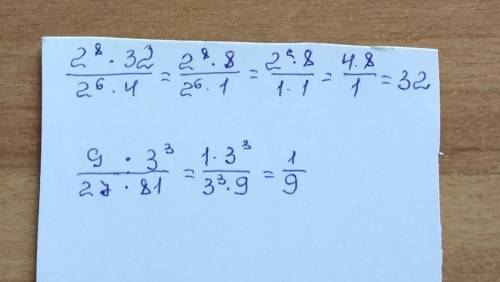 2⁸ · 32 / 2⁶ · 4 = 2⁸ · 8 / 2⁶ · 1 = 2² · 8 / 1 · 1 = 4 · 8 / 1 = 32
9 · 3³ / 27 · 81 = 1 · 3³ / 3³ · 9 = 1 / 9